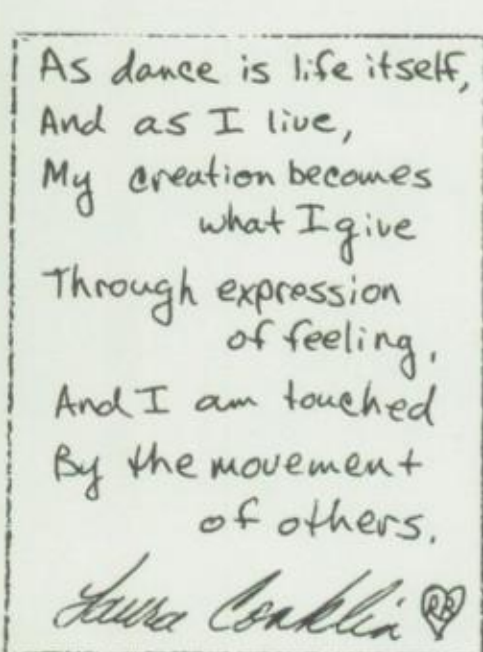 As dance is life itself,
And as I live,
My creation becomes
what I give
Through expression
of feeling,
And I am touched
By the movement
of others.
Laura Conklin